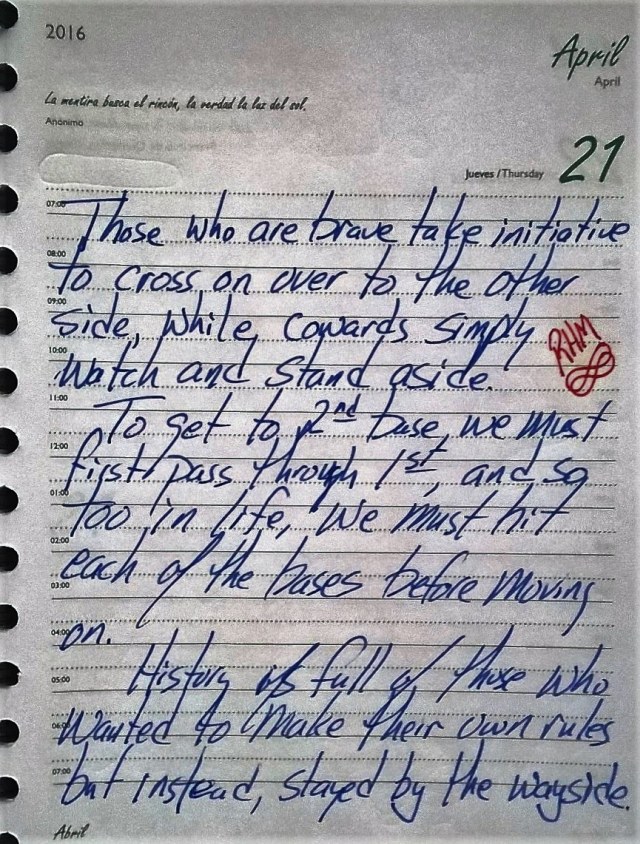 2016
April
April
La mentira busca el rincón, la verdad la luz del sol.
Anónimo
Jueves/Thursday 21
07:00
Those who are brave take initiative
08:00
to cross on over to the other
09:00
side, while, cowards simply
RHM
10:00
watch and stand aside.
11:00
To get to 2nd base, we must
12:00
first pass through 1st, and so
01:00
too in life, we must hit
02:00
each of the bases before moving
03:00
04:00
on.
05:00
History is full of those who
06:00
wanted to make their own rules
07:00
but instead, stayed by the wayside.
Abril